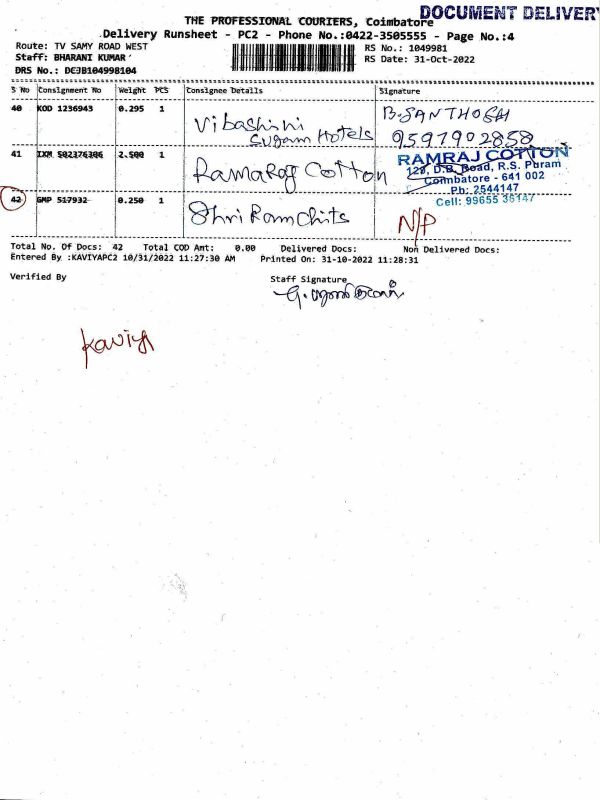 DOCUMENT DELIVERY
THE PROFESSIONAL COURIERS, Coimbatore
Delivery Runsheet - PC2 - Phone No.:0422-3505555 - Page No.:4
Route: TV SAMY ROAD WEST
Staff: BHARANI KUMAR
DRS No.: DCJB104998104
RS No.: 1049981
RS Date: 31-Oct-2022
S No Consignment No Weight PCS Consignee Details Signature
40 KOD 1236943 0.295 1 Vibashini B. SANTHOSH
Sugam Hotels 9597902858
41 IXM 502376306 2.500 1 Ramaraj Cotton
RAMRAJ COTTON
D.B. Road, R.S. Puram
Coimbatore - 641 002
Ph: 2544147
Cell: 99655 36147
42 GMP 517932 0.250 1 Shri Ram Chits N/P
Total No. Of Docs: 42 Total COD Amt: 0.00 Delivered Docs: Non Delivered Docs:
Entered By :KAVIYAPC2 10/31/2022 11:27:30 AM Printed On: 31-10-2022 11:28:31
Verified By Staff Signature
Kaviya